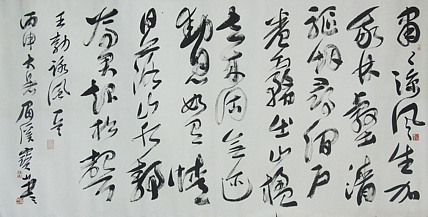 肅〻涼風生加
我林壑清
驅烟尋澗户
卷霧出山楹
去來固無迹
動息如有情
日落山水静
為君起松聲
王勃詠風
丙申大暑 書